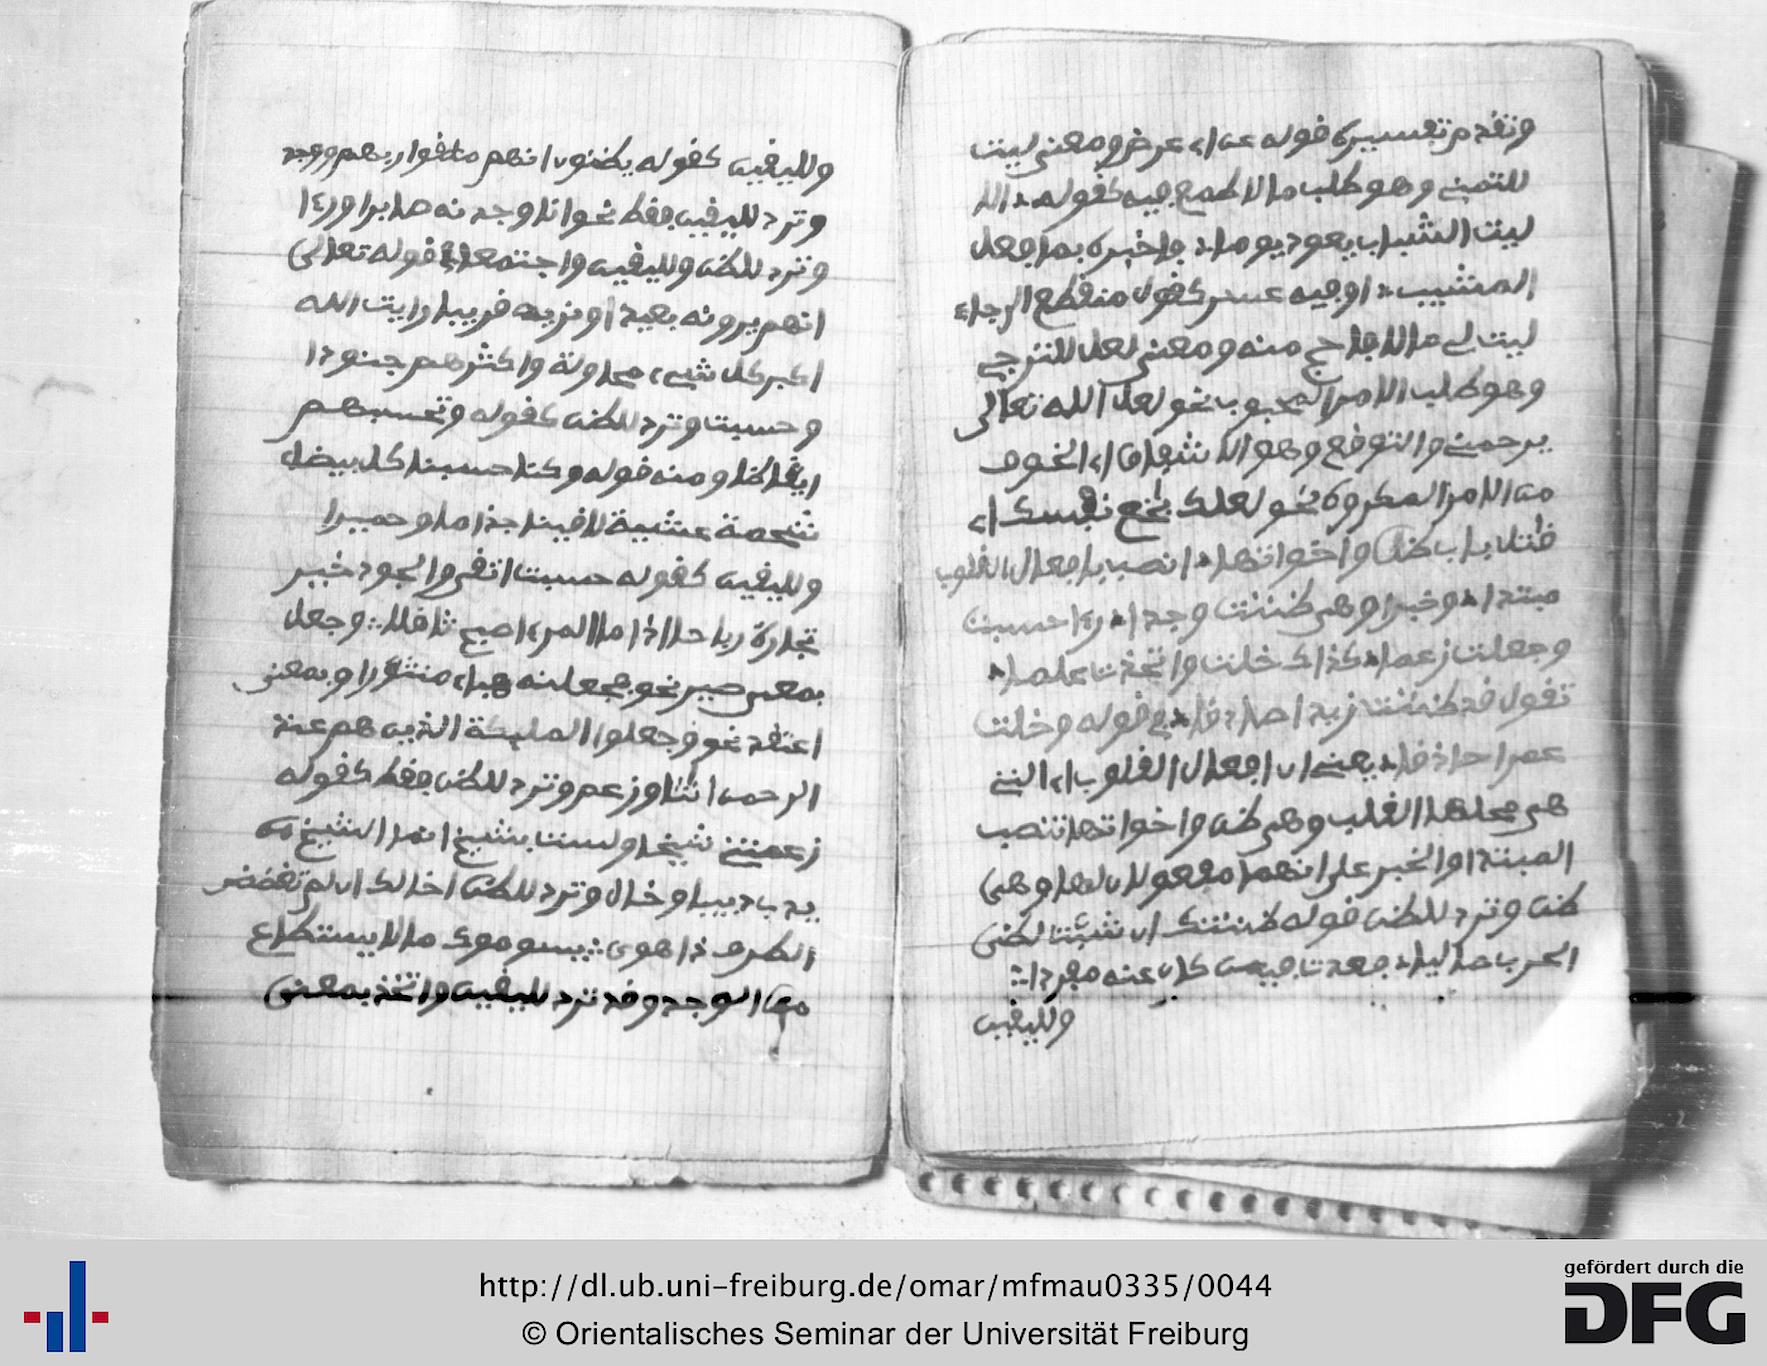 وتقدم تفسيره فوله عن اي عرض ومعنى ليت
للتمنى وهو طلب ما لا طمع فيه كفوله الا
ليت الشباب يعود يوما فاخبره بما فعل
المشيب او فيه عسر كفول منقطع الرجاء
ليت لي مالا فاحج منه ومعنى لعل للترجي
وهو طلب الامر المحبوب نحو لعل الله تعالى
يرحمنى والتوقع وهو الاشفاق اي الخوف
من الامر المكروه نحو لعلك بخع نفسك اي
قتل باب ظن واخواتها انصب بافعال القلوب
مبتدا وخبرا وهى ظننت وجدا را حسبت
وجعلت زعما كذاك خلت واتخذت علما
تقول قد ظننت زيدا صادقا في قوله وخلت
عمرا حاذقا يعنى ان افعال القلوب اي التى
هى محلها القلب وهى ظن واخواتها تنصب
المبتدا والخبر على انهما مفعولان لها وهى
ظن وترد للظن قوله ظننتك ان شبت لظى
الحرب صاليا فعدت فيمن كان عنه معردا
ولليقين
ولليقين كقوله يظنون انهم ملقوا ربهم ووجد
وترد لليقين فقط نحو انا وجدنه صابرا ورءا
وترد للظن ولليقين واجتمعا في قوله تعالى
انهم يرونه بعيدا ونريه قريبا رايت الله
اكبر كل شيء محاولة واكثرهم جنودا
وحسبت وترد للظن كقوله وتحسبهم
ايقاظا ومنه قوله وكنا حسبنا كل بيضاء
شحمة عشية لاقينا جذاما وحميرا
ولليقين كقوله حسبت التقى والجود خير
تجارة رباحا اذا ما المرء اصبح ثاقلا وجعل
بمعنى صير نحو فجعلنه هباء منثورا وبمعنى
اعتقد نحو وجعلوا المليكة الذين هم عند
الرحمن انثا وزعم وترد للظن فقط كقوله
زعمتنى شيخا ولست بشيخ انما الشيخ من
يدب دبيبا وخال وترد للظن اخالك ان لم تغضض
الطرف ذا هوى يسومك ما لا يستطاع
من الوجد وقد ترد لليقين واتخذ بمعنى
http://dl.ub.uni-freiburg.de/omar/mfmau0335/0044
© Orientalisches Seminar der Universität Freiburg
gefördert durch die
DFG